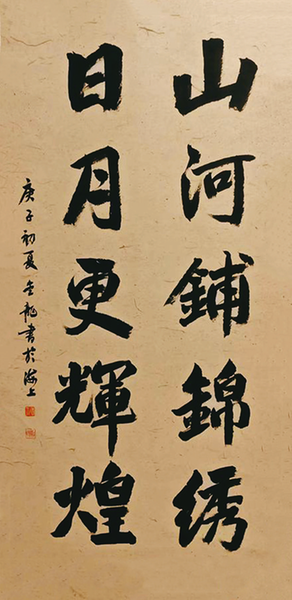 山河鋪錦绣
日月更輝煌
庚子初夏金龍書於海上